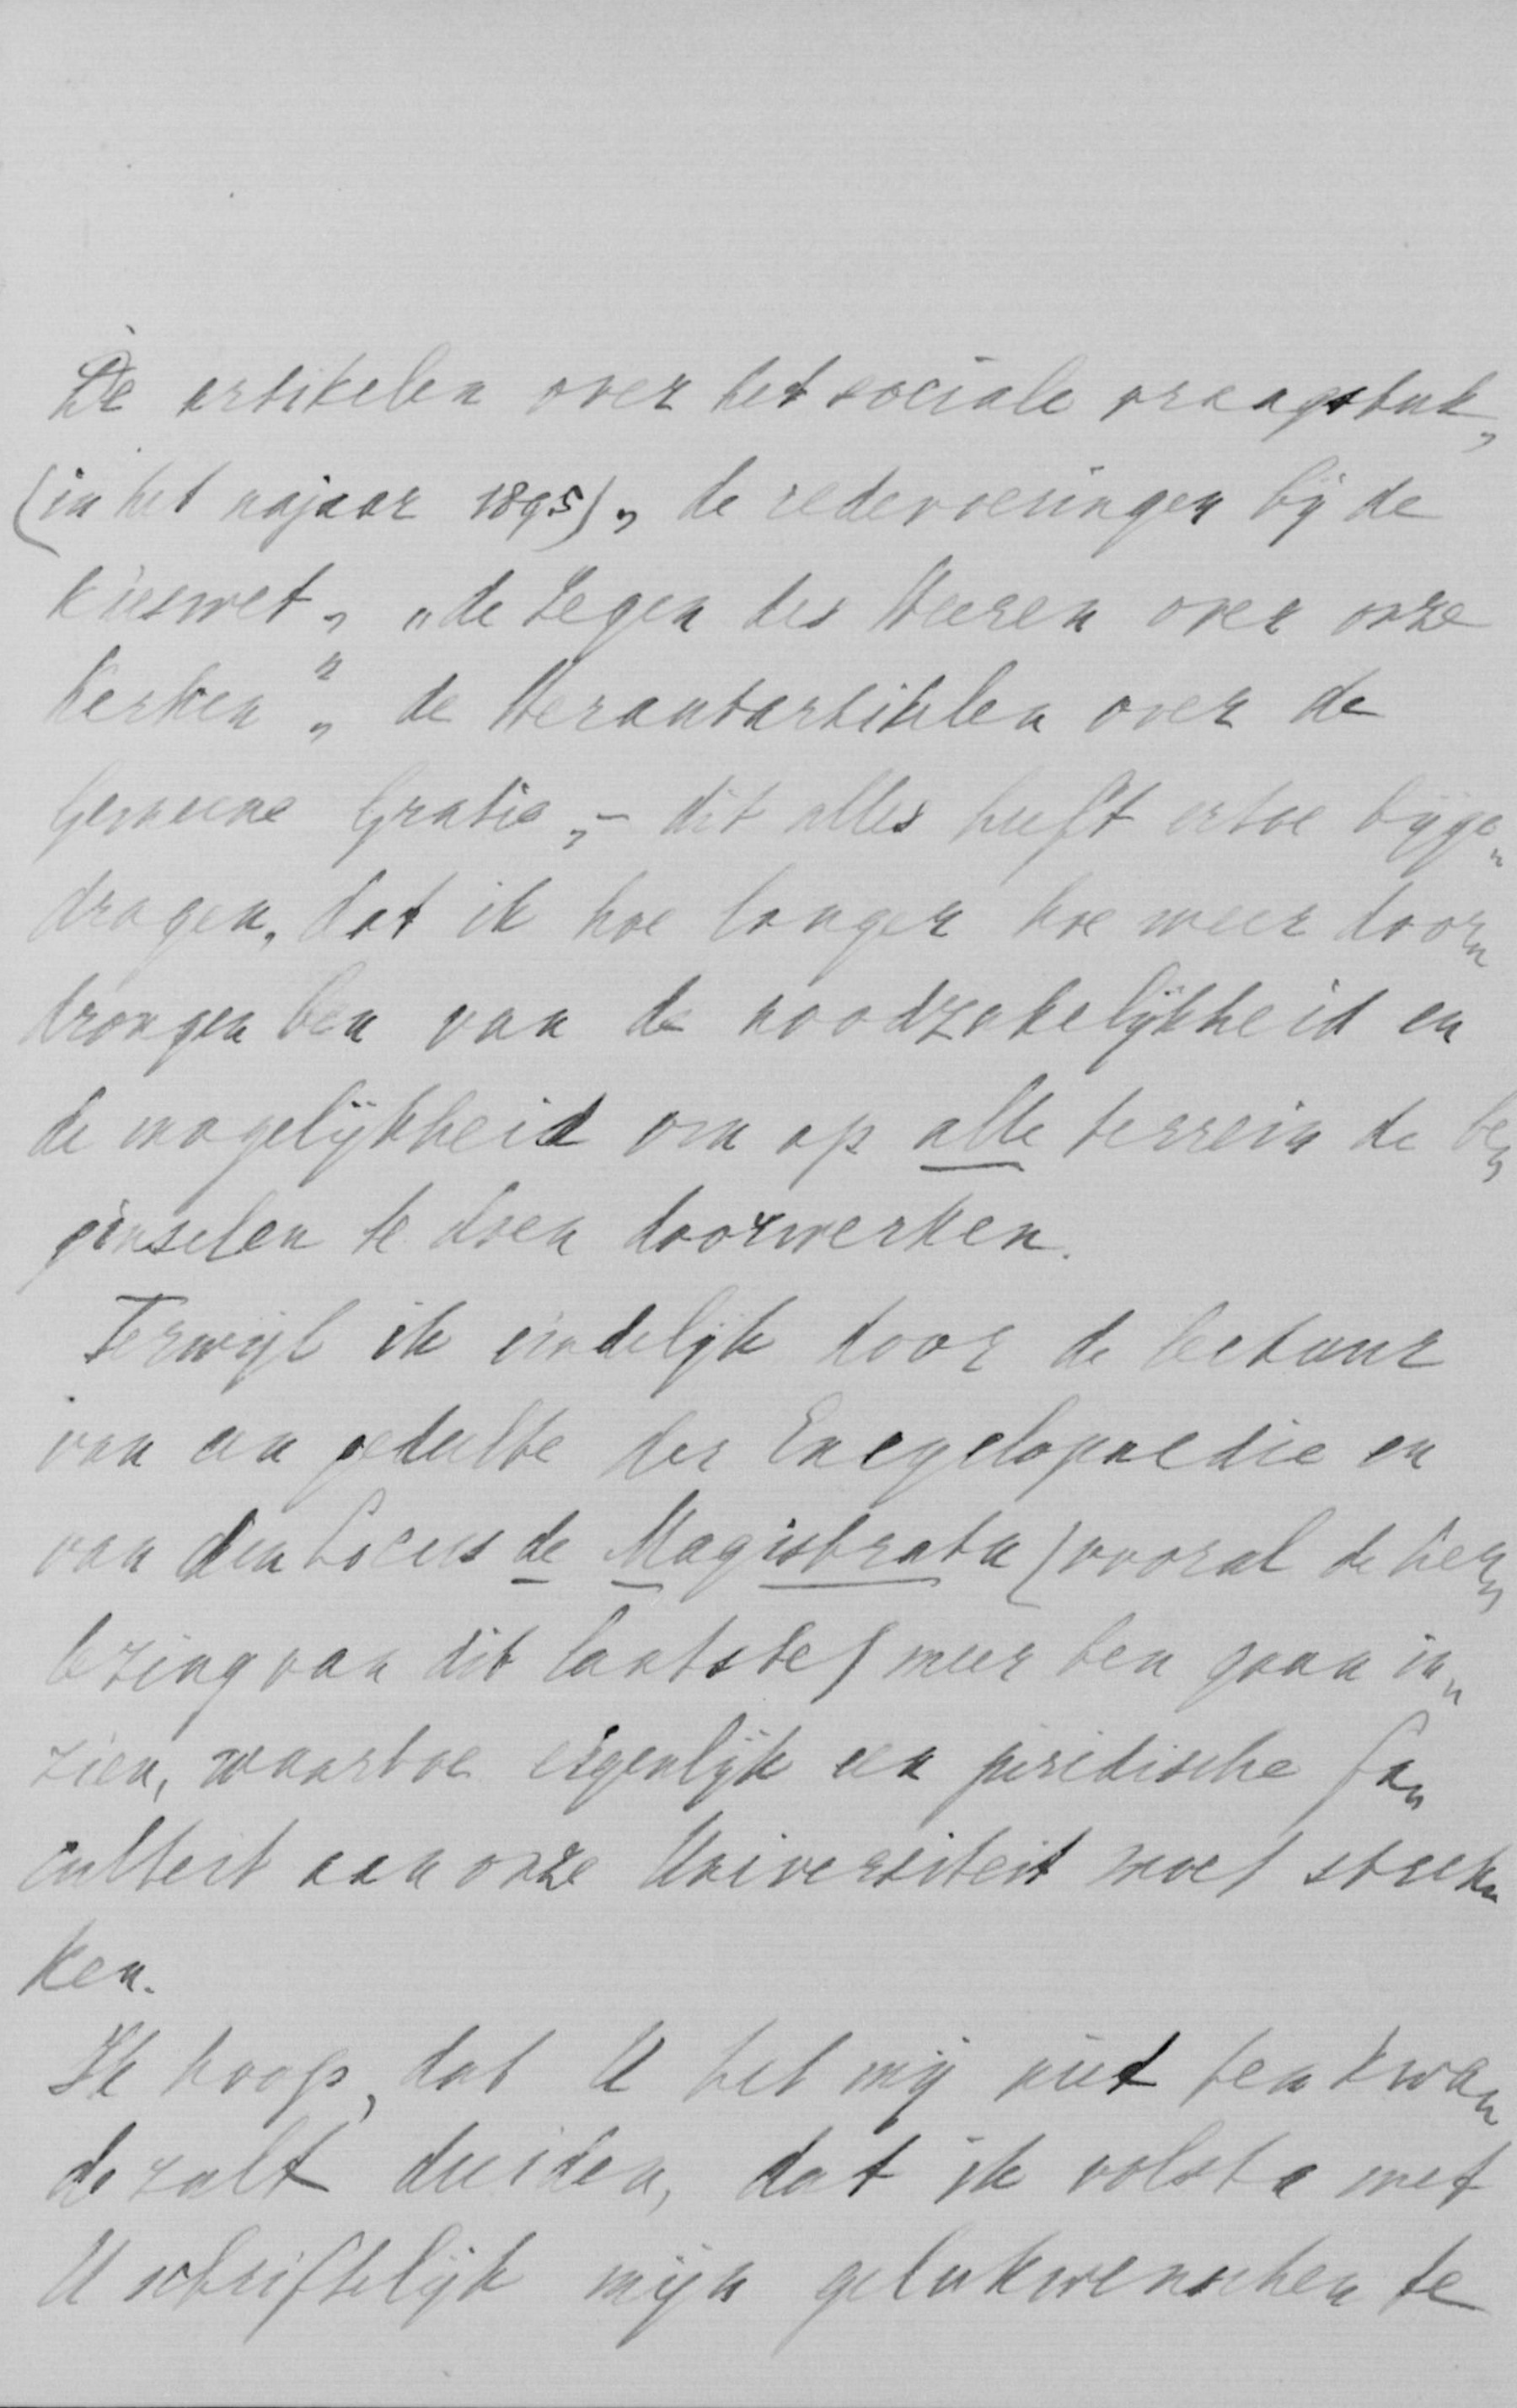 De artikelen over het sociale vraagstuk,
(in het najaar 1895), de redevoeringen bij de
kieswet, „de Zegen des Heeren over onze
Kerken", de Herautartikelen over de
Gemeene Gratie, – dit alles heeft ertoe bijge„
dragen, dat ik hoe langer hoe meer door„
drongen ben van de noodzakelijkheid en
de mogelijkheid om op alle terrein de be„
ginselen te doen doorwerken.
Terwijl ik eindelijk door de lectuur
van een gedeelte der Encyclopaedie en
van den Locus de Magistratu (vooral de her„
lezing van dit laatste) meer ben gaan in„
zien, waartoe eigenlijk een juridische fa„
culteit aan onze Universiteit moet strek„
ken.
Ik hoop, dat U het mij niet ten kwa„
de zult duiden, dat ik volsta met
U schriftelijk mijn gelukwenschen te